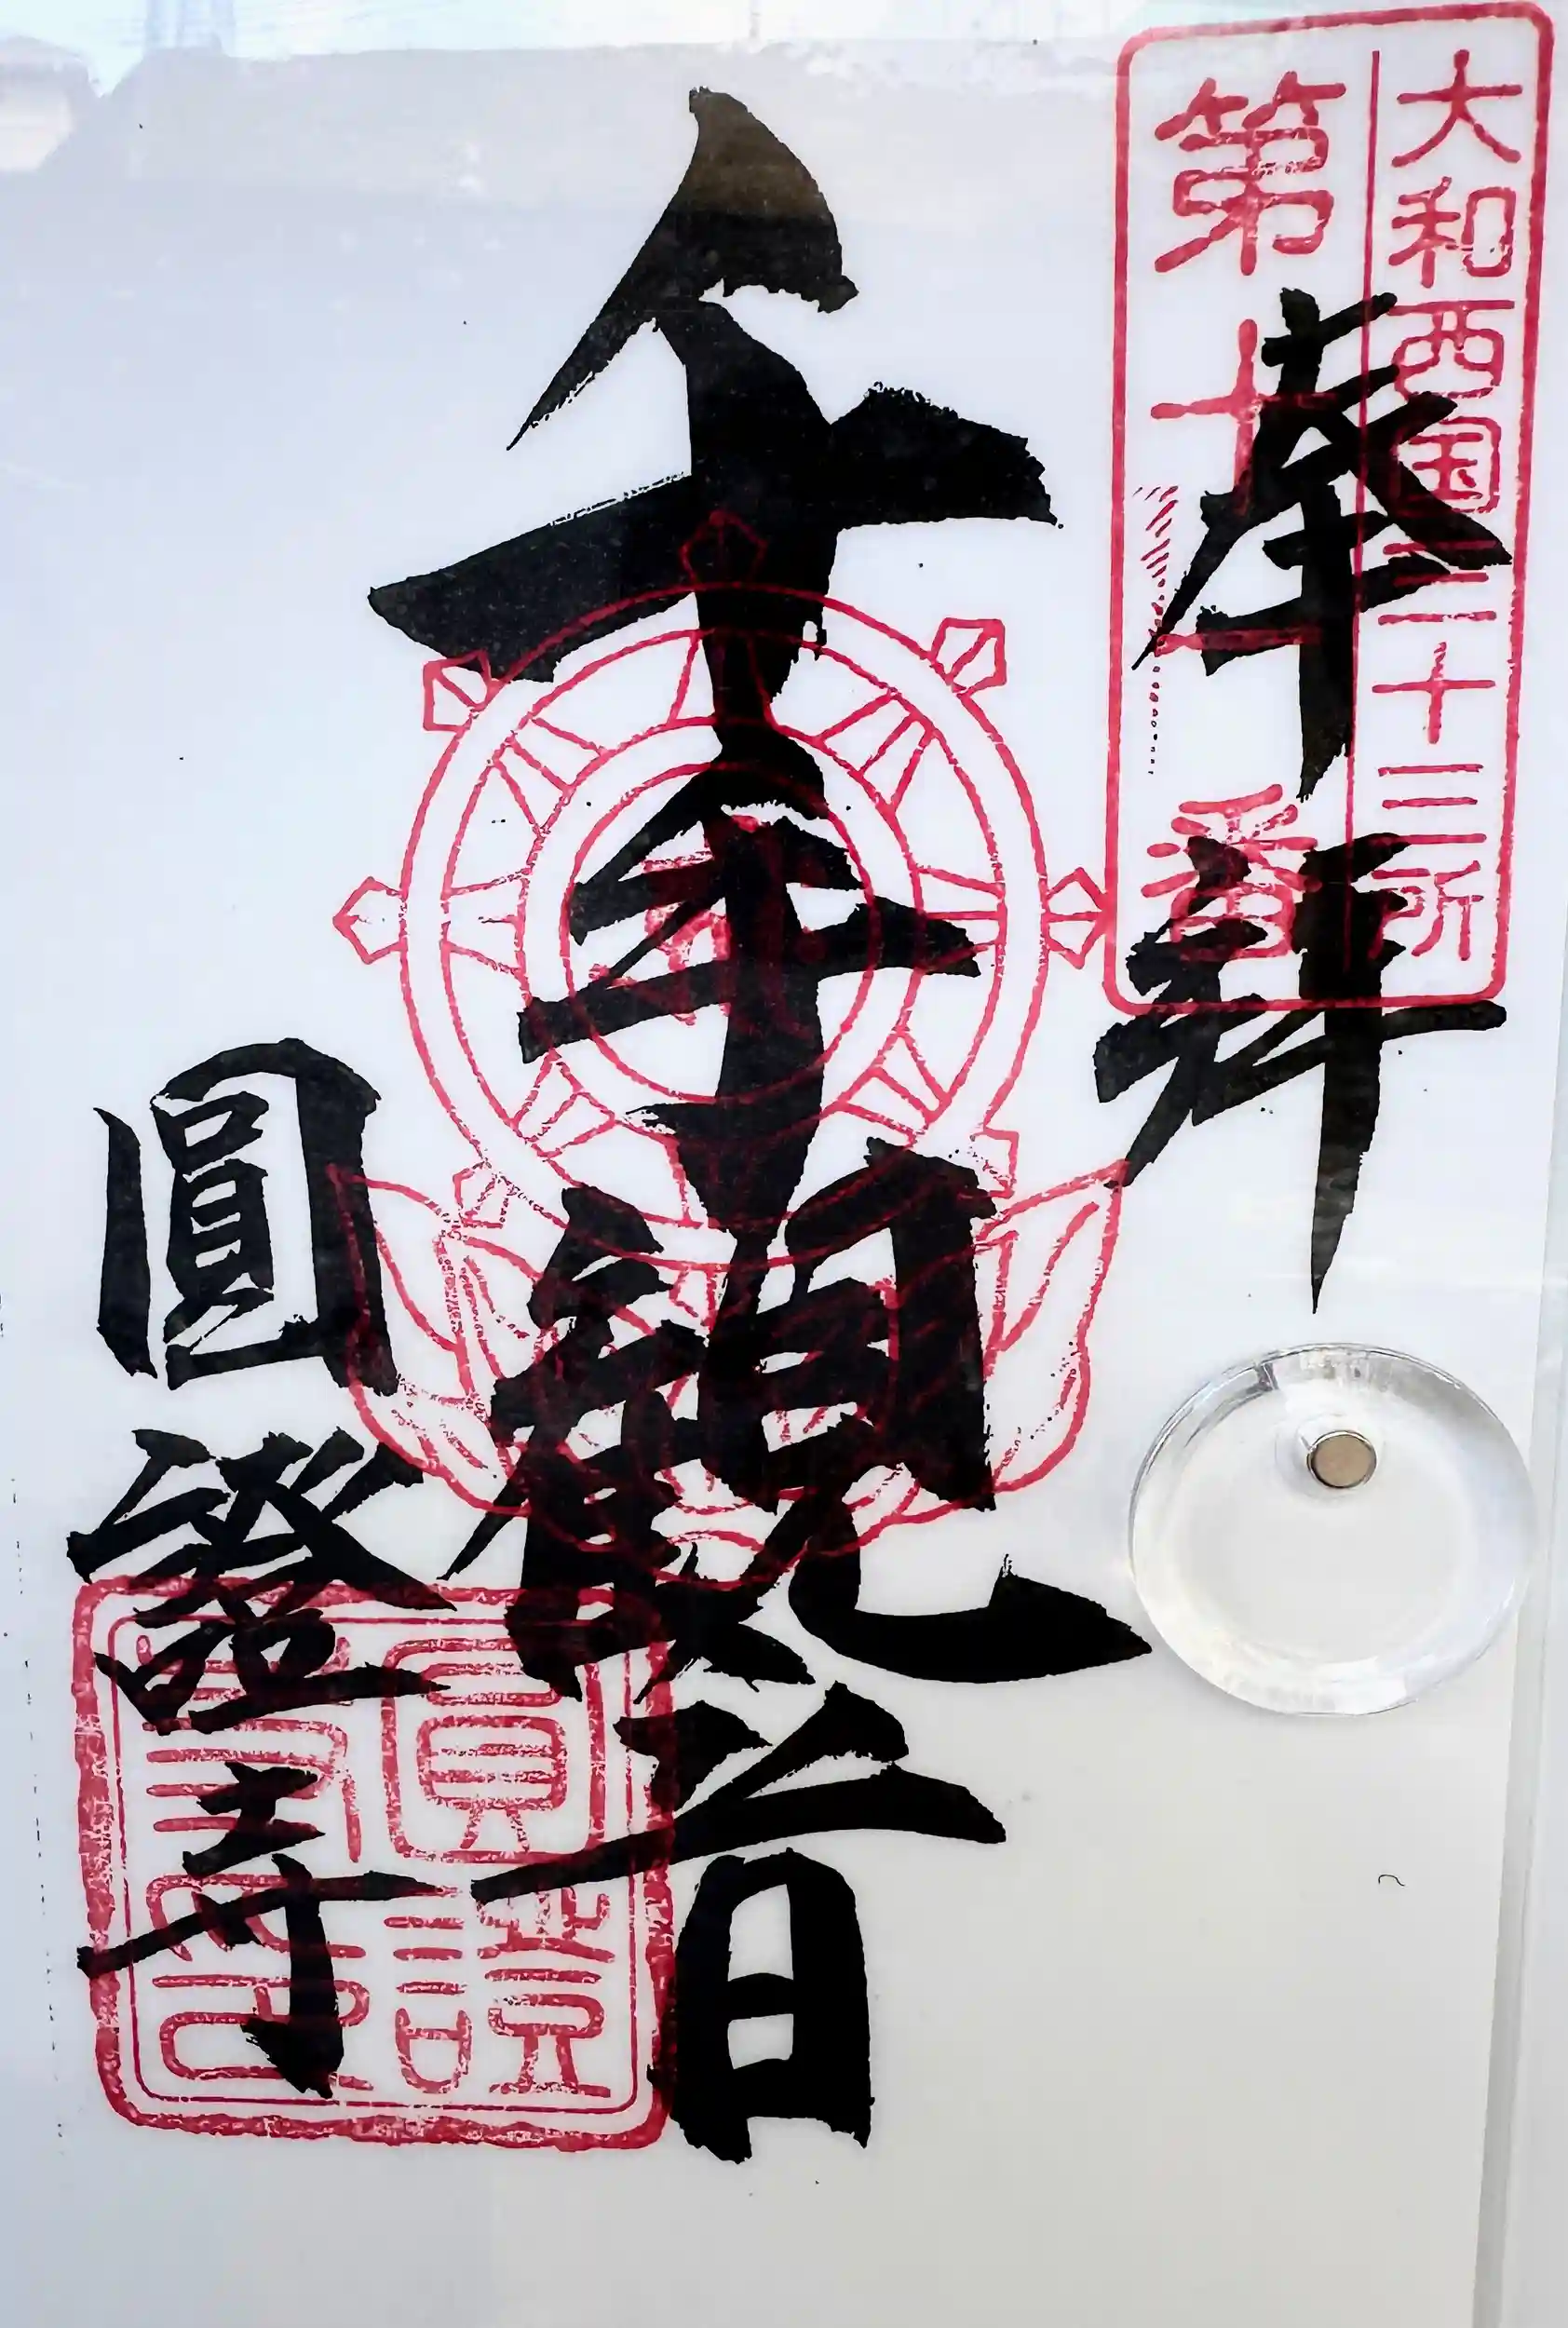 大和西国三十三所
第十番
奉拝
千手觀音
圓證寺
圓證
寺印